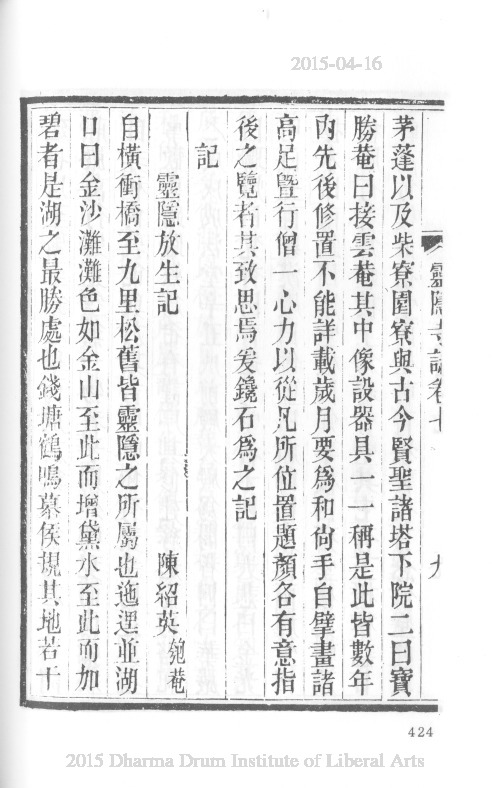 2015-04-16
靈隱寺誌卷七
九
茅蓬以及柴寮園寮與古今賢聖諸塔下院二曰寶
勝菴曰接雲菴其中像設器具一一稱是此皆數年
內先後修置不能詳載歲月要爲和尙手自擘畫諸
高足暨行僧一心力以從凡所位置題顏各有意指
後之覽者其致思焉爰鑱石爲之記
記
靈隱放生記
陳紹英 匏菴
自橫衝橋至九里松舊皆靈隱之所屬也迤邐並湖
口曰金沙灘灘色如金山至此而增黛水至此而加
碧者是湖之最勝處也錢塘鶴鳴慕侯規其地若干
424
2015 Dharma Drum Institute of Liberal Arts